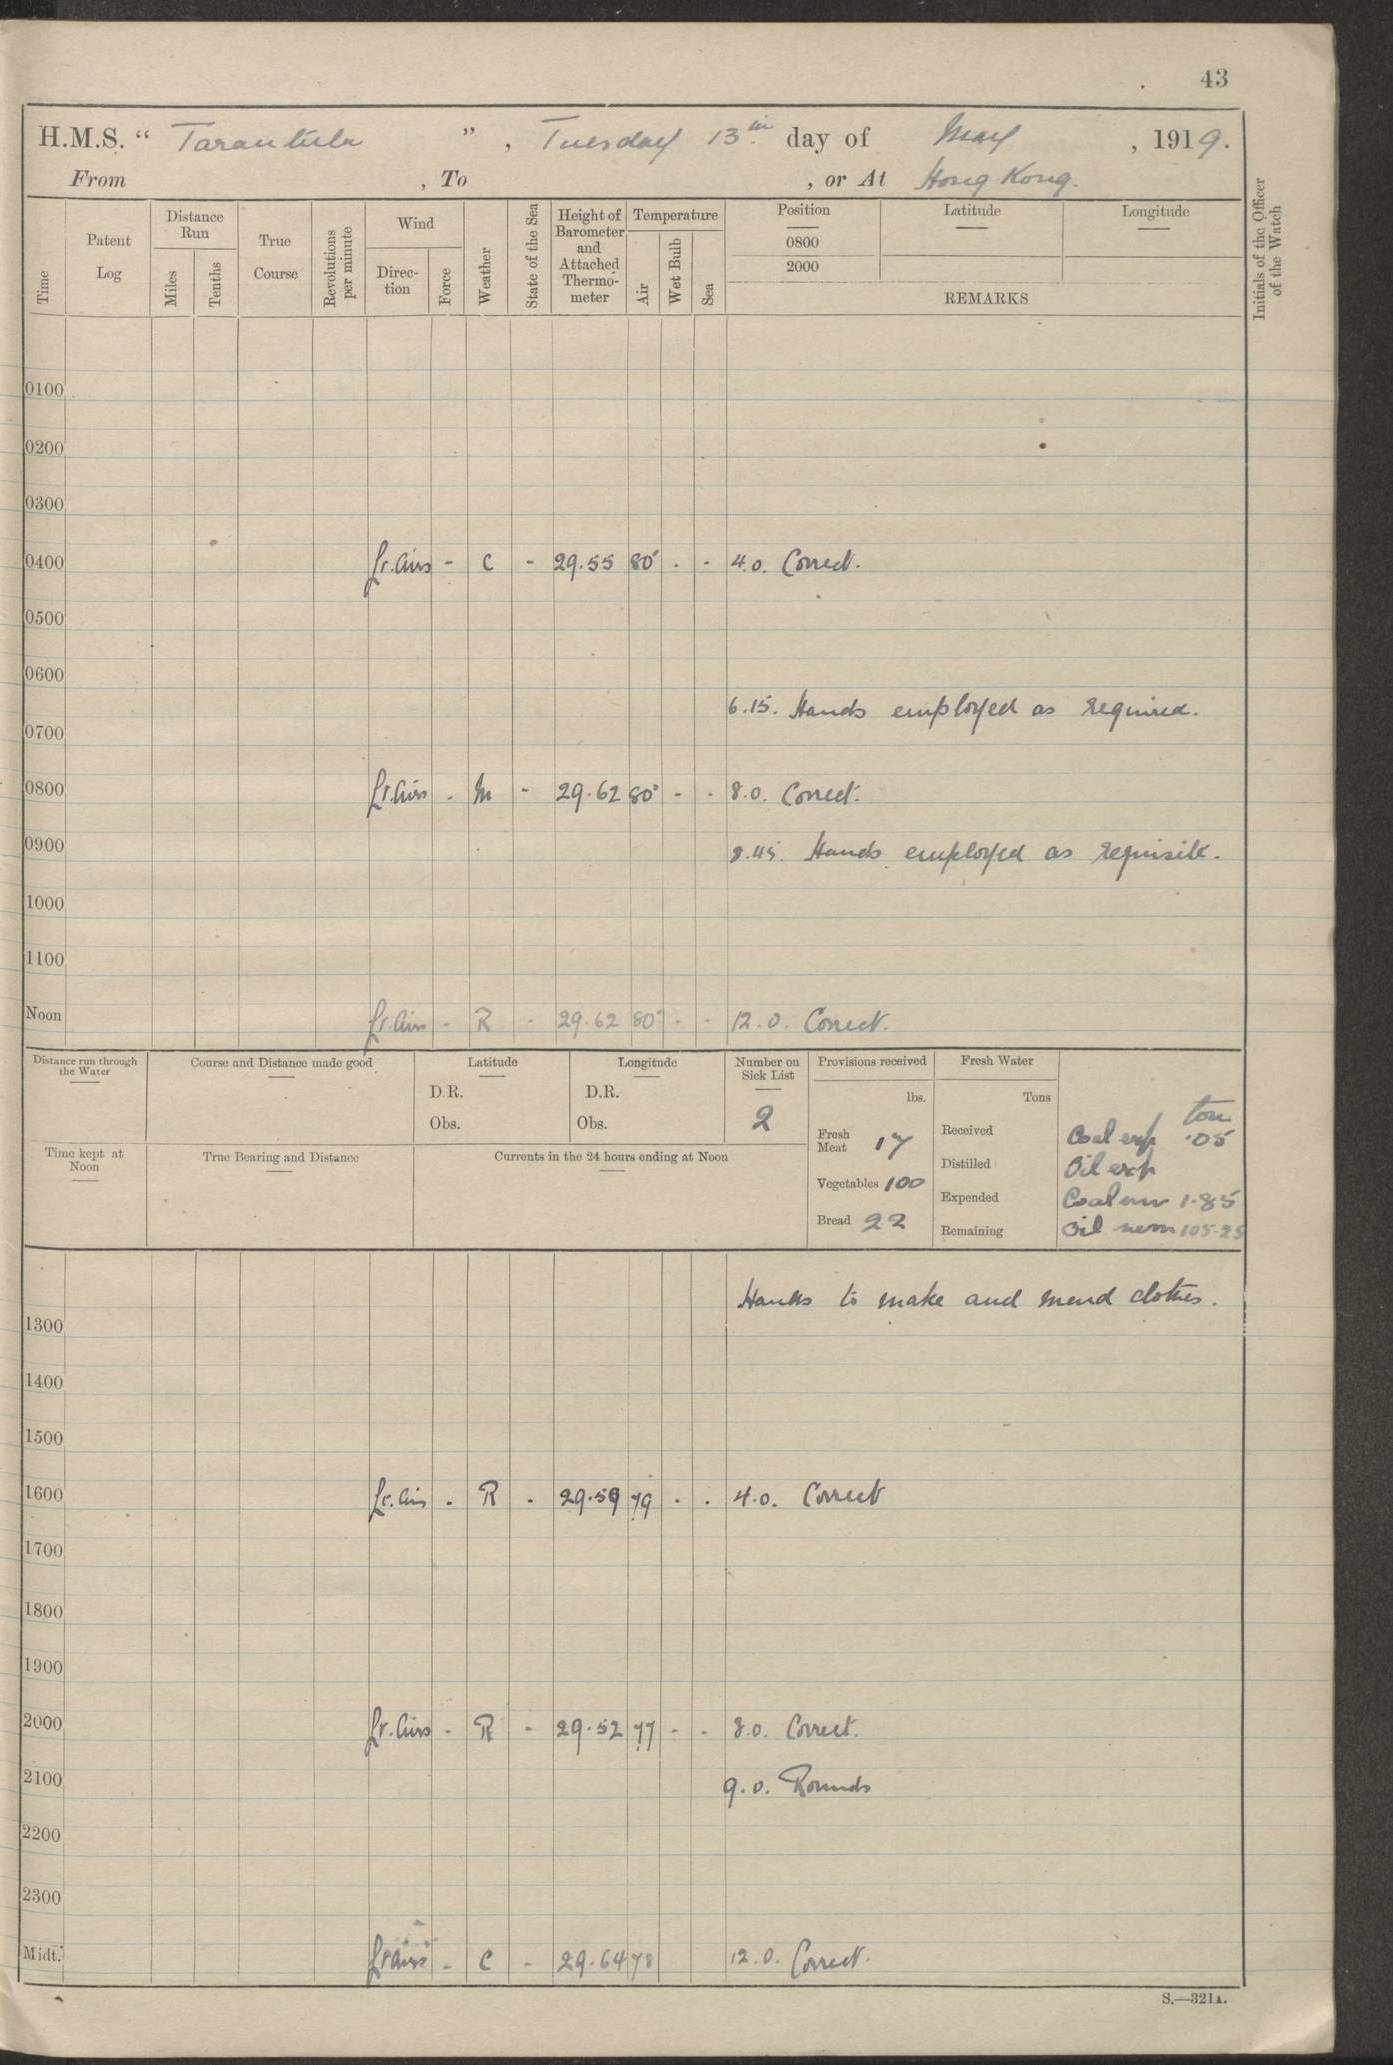 43
H.M.S. “ Tarantula ” , Tuesday 13th day of May , 1919.
From , To , or At Hong Kong.
Time Patent Log Distance Run Miles Tenths True Course Revolutions per minute Wind Direc-tion Force Weather State of the Sea Height of Barometer and Attached Thermo-meter Temperature Air Wet Bulb Sea Position 0800 2000 Latitude Longitude
REMARKS
Initials of the Officer of the Watch
0100
0200
0300
0400 Lt. Airs - C - 29.55 80° - - 4.0. Correct.
0500
0600
6.15. Hands employed as required.
0700
0800 Lt. Airs - M - 29.62 80° - - 8.0. Correct.
0900 8.45. Hands employed as requisite.
1000
1100
Noon Lt. Airs - R - 29.62 80° - - 12.0. Correct.
Distance run through the Water Course and Distance made good Latitude Longitude Number on Sick List Provisions received Fresh Water
D.R. D.R. lbs. Tons
Obs. Obs. 2 Fresh Meat 17 Received Coal exp ton .05
Time kept at Noon True Bearing and Distance Currents in the 24 hours ending at Noon Distilled Oil exp
Vegetables 100 Expended Coal rem 1.85
Bread 22 Remaining Oil rem 105.25
Hands to make and mend clothes.
1300
1400
1500
1600 Lt. Airs - R - 29.59 79 - - 4.0. Correct
1700
1800
1900
2000 Lt. Airs - R - 29.52 77 - - 8.0. Correct.
2100 9.0. Rounds
2200
2300
Midt. Lt airs - C - 29.64 78 12.0. Correct.
S.—321A.